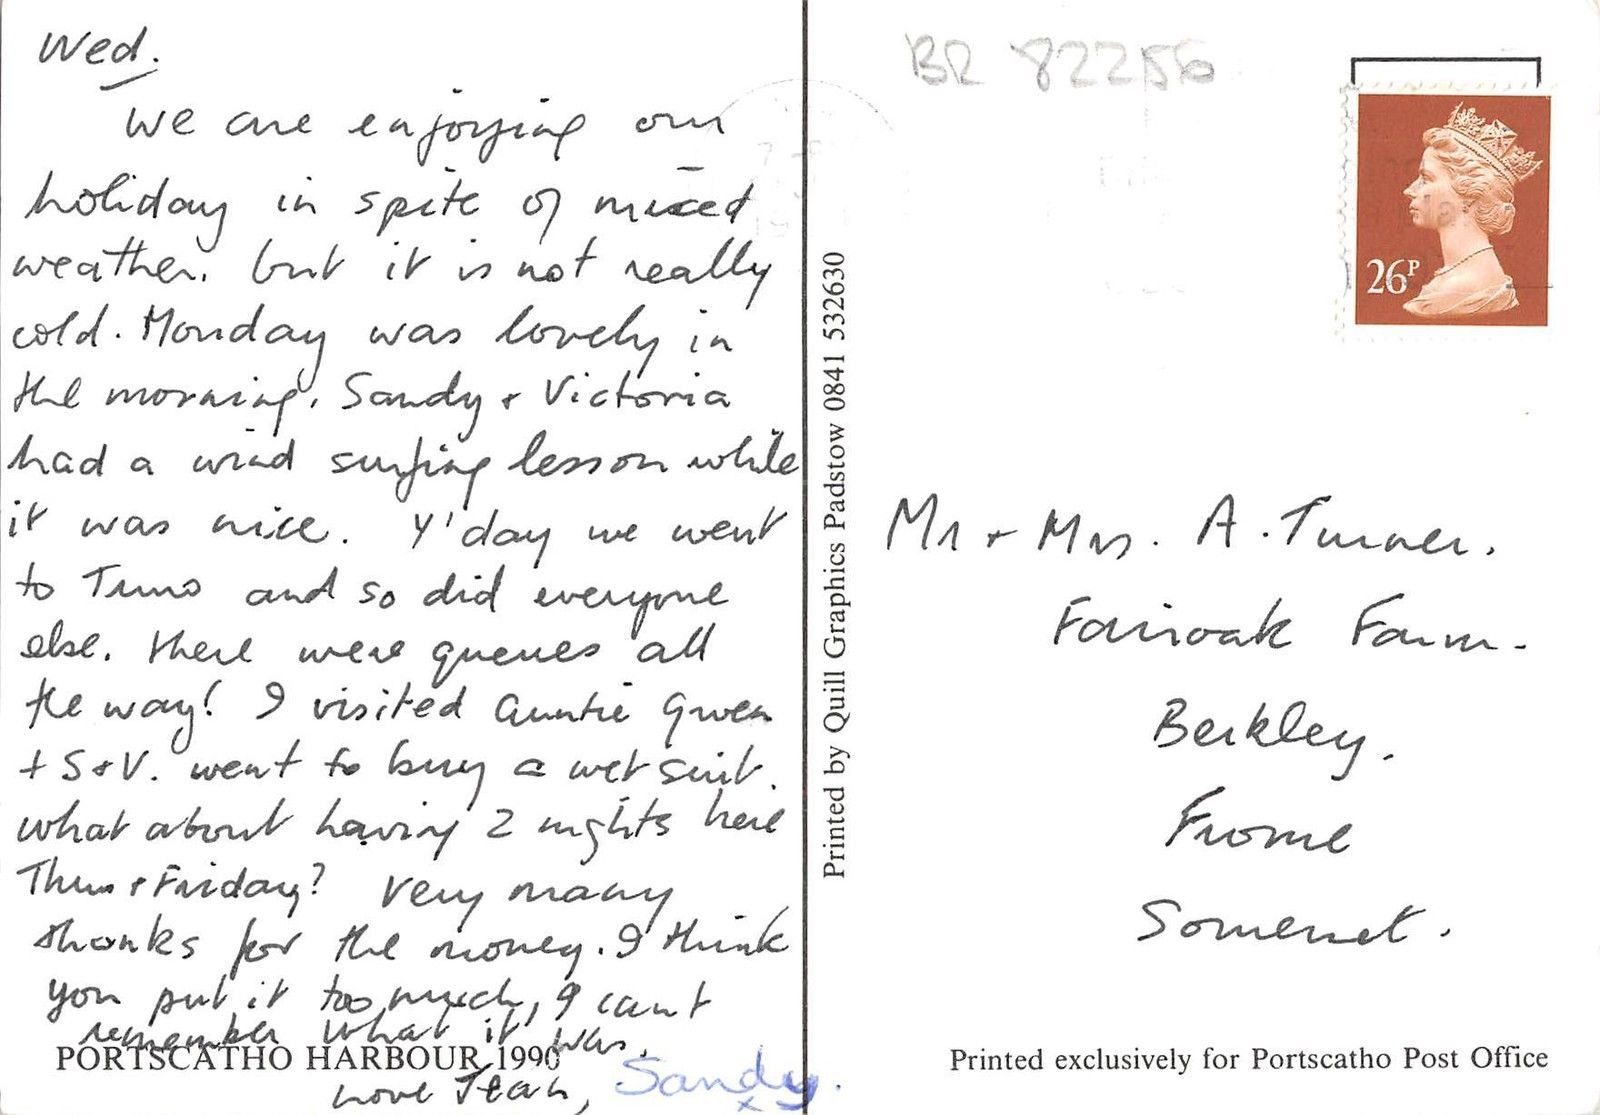 Wed.
We are enjoying our
holiday in spite of mixed
weather. but it is not really
cold. Monday was lovely in
the morning. Sandy + Victoria
had a wind surfing lesson while
it was nice. Y'day we went
to Truro and so did everyone
else. there were queues all
the way! I visited Auntie Gwen
+ S+V. went to buy a wet suit.
what about having 2 nights here
Thurs + Friday? Very many
thanks for the money. I think
you put it too much, I cant
remember what it was.
PORTSCATHO HARBOUR 1990
Love Jean, Sandy.
x
Printed by Quill Graphics Padstow 0841 532630
BR 82256
26P
Mr + Mrs. A. Turner.
Fairoak Farm.
Berkley.
Frome
Somerset.
Printed exclusively for Portscatho Post Office